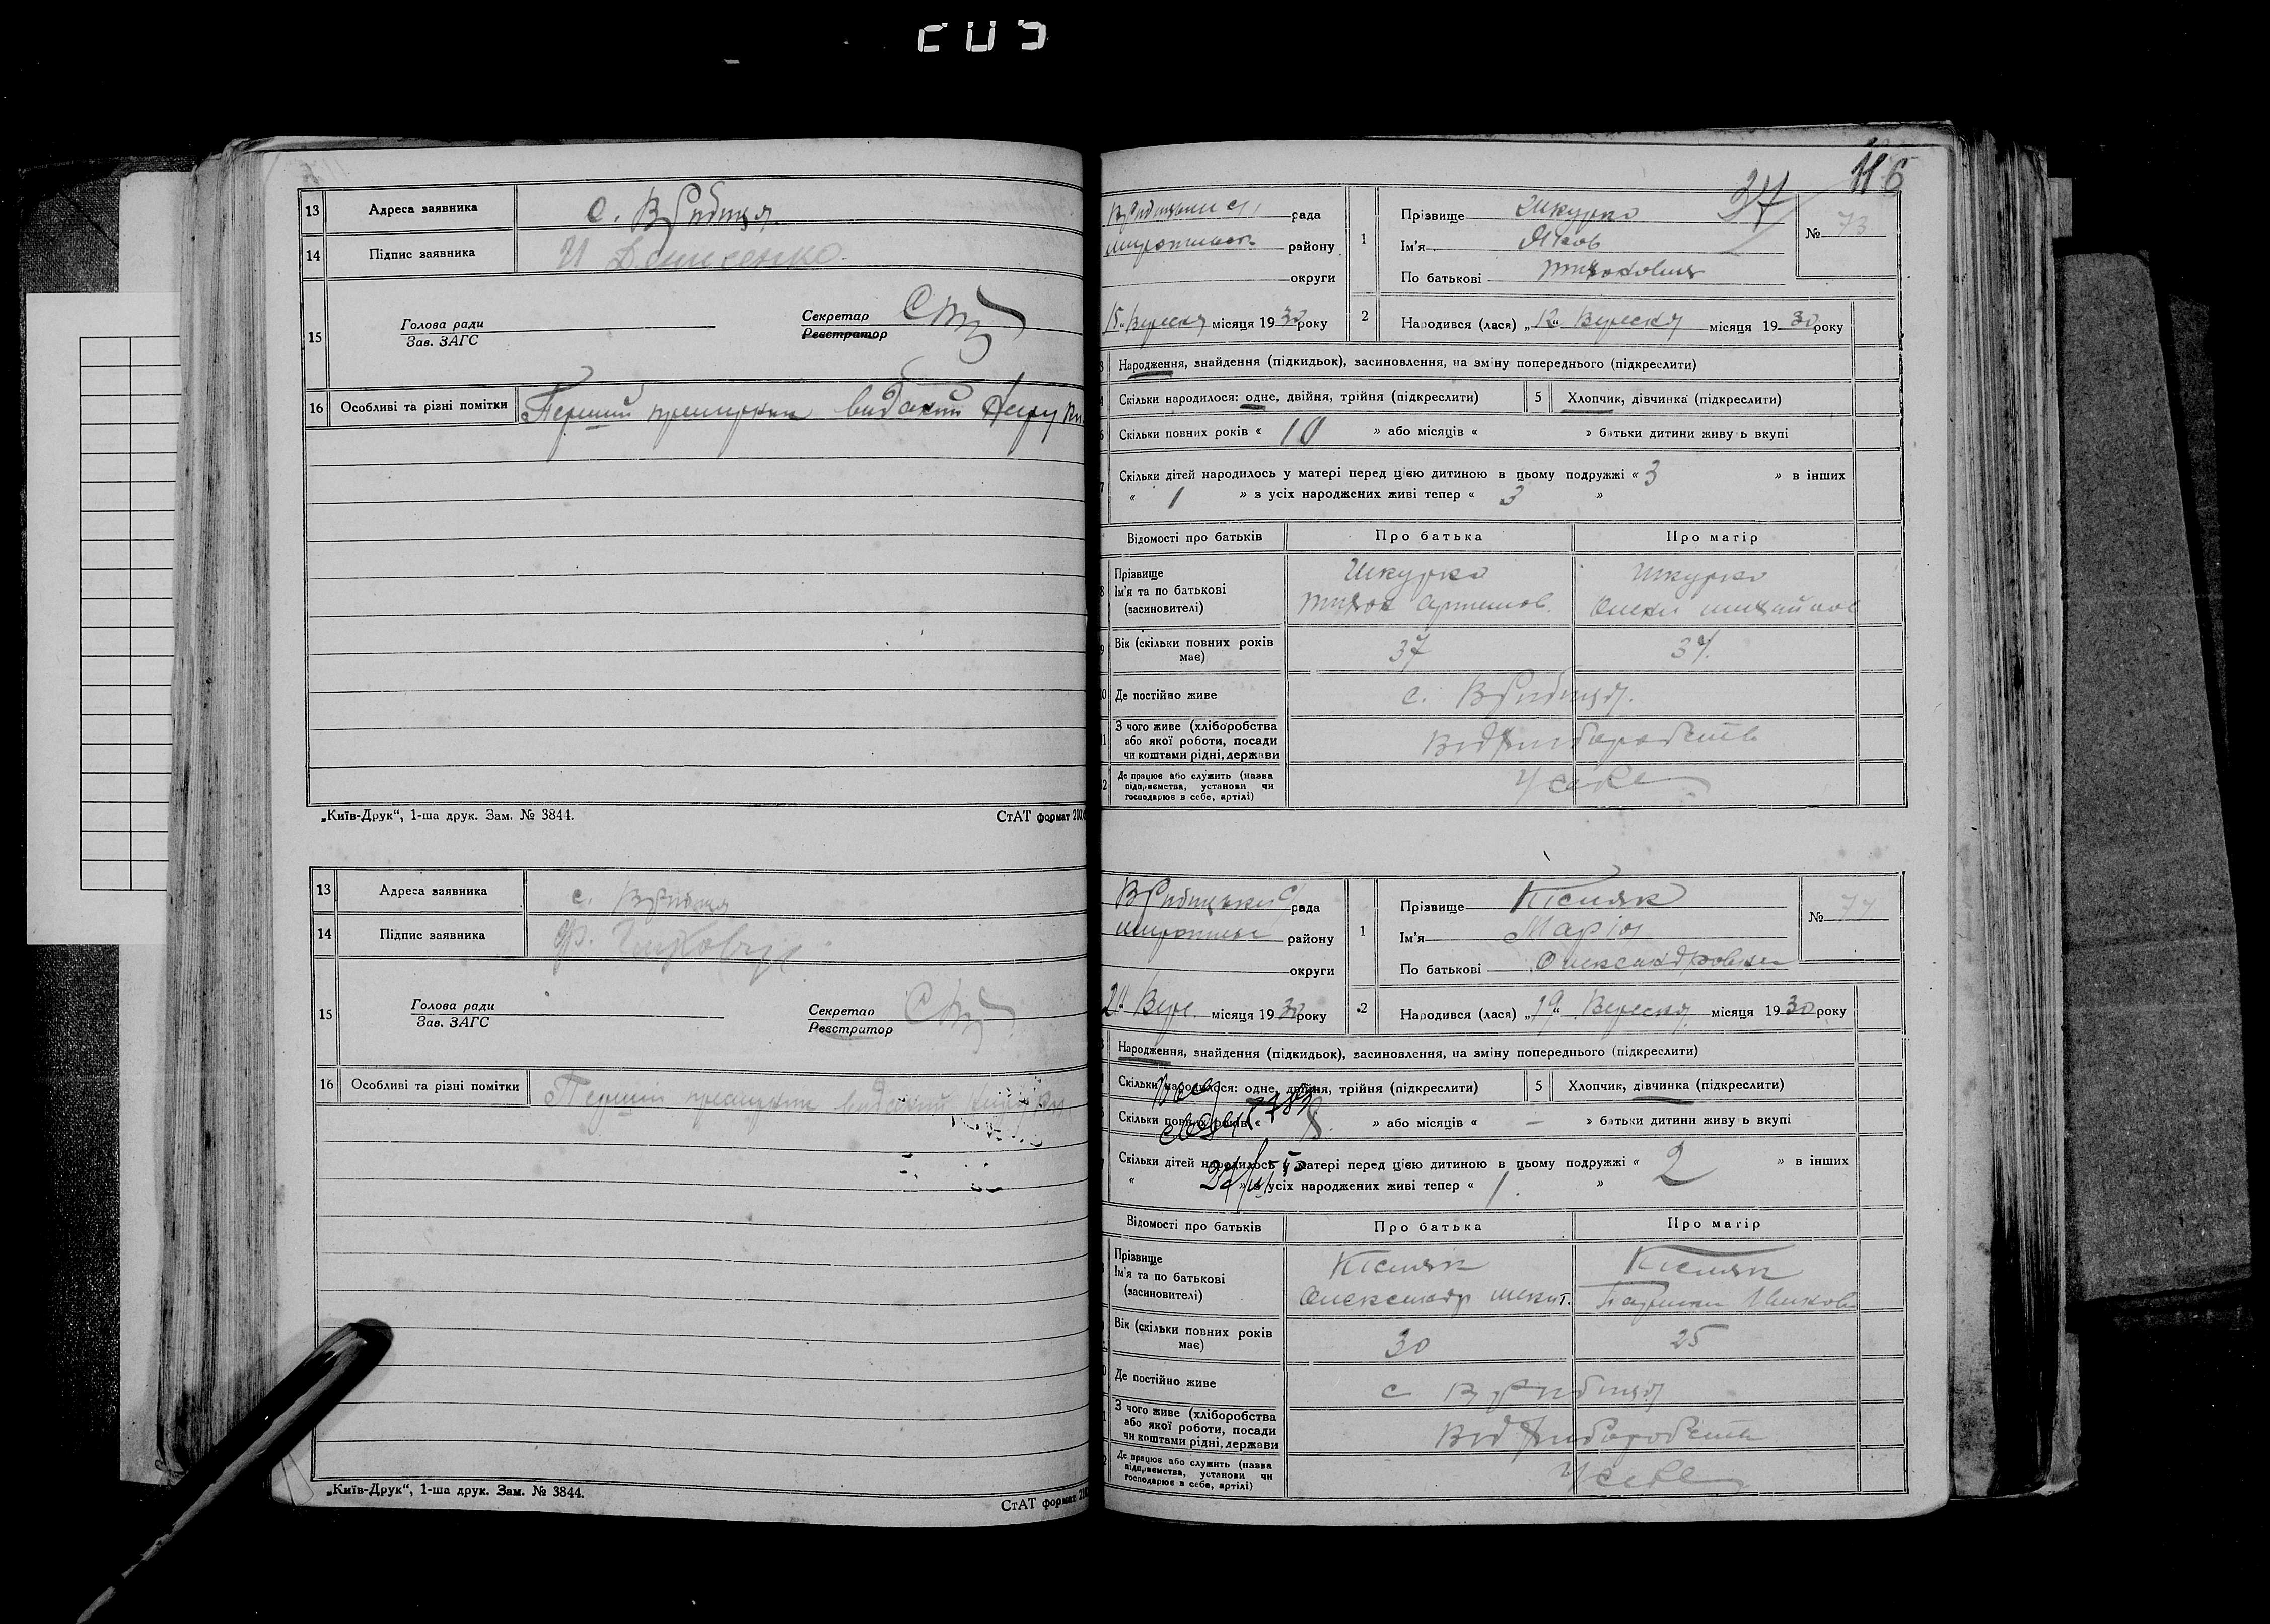 13 Адреса заявника с. В Рибиця.
14 Підпис заявника И Денисенко
15 Голова ради
Зав. ЗАГС
Секретар
Реєстратор
16 Особливі та різні помітки Перший примірник виданий
„Київ-Друк“, 1-ша друк. Зам. № 3844.
СтАТ формат
13 Адреса заявника с. В Рибиця
14 Підпис заявника
15 Голова ради
Зав. ЗАГС
Секретар
Реєстратор
16 Особливі та різні помітки Перший примірник виданий
„Київ-Друк“, 1-ша друк. Зам. № 3844.
СтАТ формат
116
37
рада
району
округи
15 Вересня місяця 1930 року
1 Прізвище Шкурко
Ім'я Яков
По батькові
№ 73
2 Народився (лася) „12“ Вересня місяця 1930 року
Народження, знайдення (підкидьок), засиновлення, на зміну попереднього (підкреслити)
Скільки народилося: одне, двійня, трійня (підкреслити) 5 Хлопчик, дівчинка (підкреслити)
Скільки повних років « 10 » або місяців « » батьки дитини живуть вкупі
Скільки дітей народилось у матері перед цією дитиною в цьому подружжі « 3 » в інших
« 1 » з усіх народжених живі тепер « 3 »
Відомості про батьків Про батька Про матір
Прізвище Шкурко Шкурко
Ім'я та по батькові
(засиновителі)
Вік (скільки повних років має) 37 37
Де постійно живе с. В Рибиця.
З чого живе (хліборобства
або якої роботи, посади
чи коштами рідні, держави
Від хліборобств
Де працює або служить (назва
підприємства, установи чи
господарює в себе, артілі)
У себе
рада
району
округи
Вере. місяця 1930 року
1 Прізвище Кісляк
Ім'я Марія
По батькові Олександровна
№ 74
2 Народився (лася) „19“ Вересня місяця 1930 року
Народження, знайдення (підкидьок), засиновлення, на зміну попереднього (підкреслити)
Скільки народилося: одне, двійня, трійня (підкреслити) 5 Хлопчик, дівчинка (підкреслити)
Скільки повних років « 8. » або місяців « – » батьки дитини живуть вкупі
Скільки дітей народилось у матері перед цією дитиною в цьому подружжі « 2 » в інших
« » з усіх народжених живі тепер « 1. »
Відомості про батьків Про батька Про матір
Прізвище Кісляк Кісляк
Ім'я та по батькові Олександр Микит.
(засиновителі)
Вік (скільки повних років має) 30 25
Де постійно живе с В Рибиця
З чого живе (хліборобства
або якої роботи, посади
чи коштами рідні, держави
Від хліборобств
Де працює або служить (назва
підприємства, установи чи
господарює в себе, артілі)
У себе